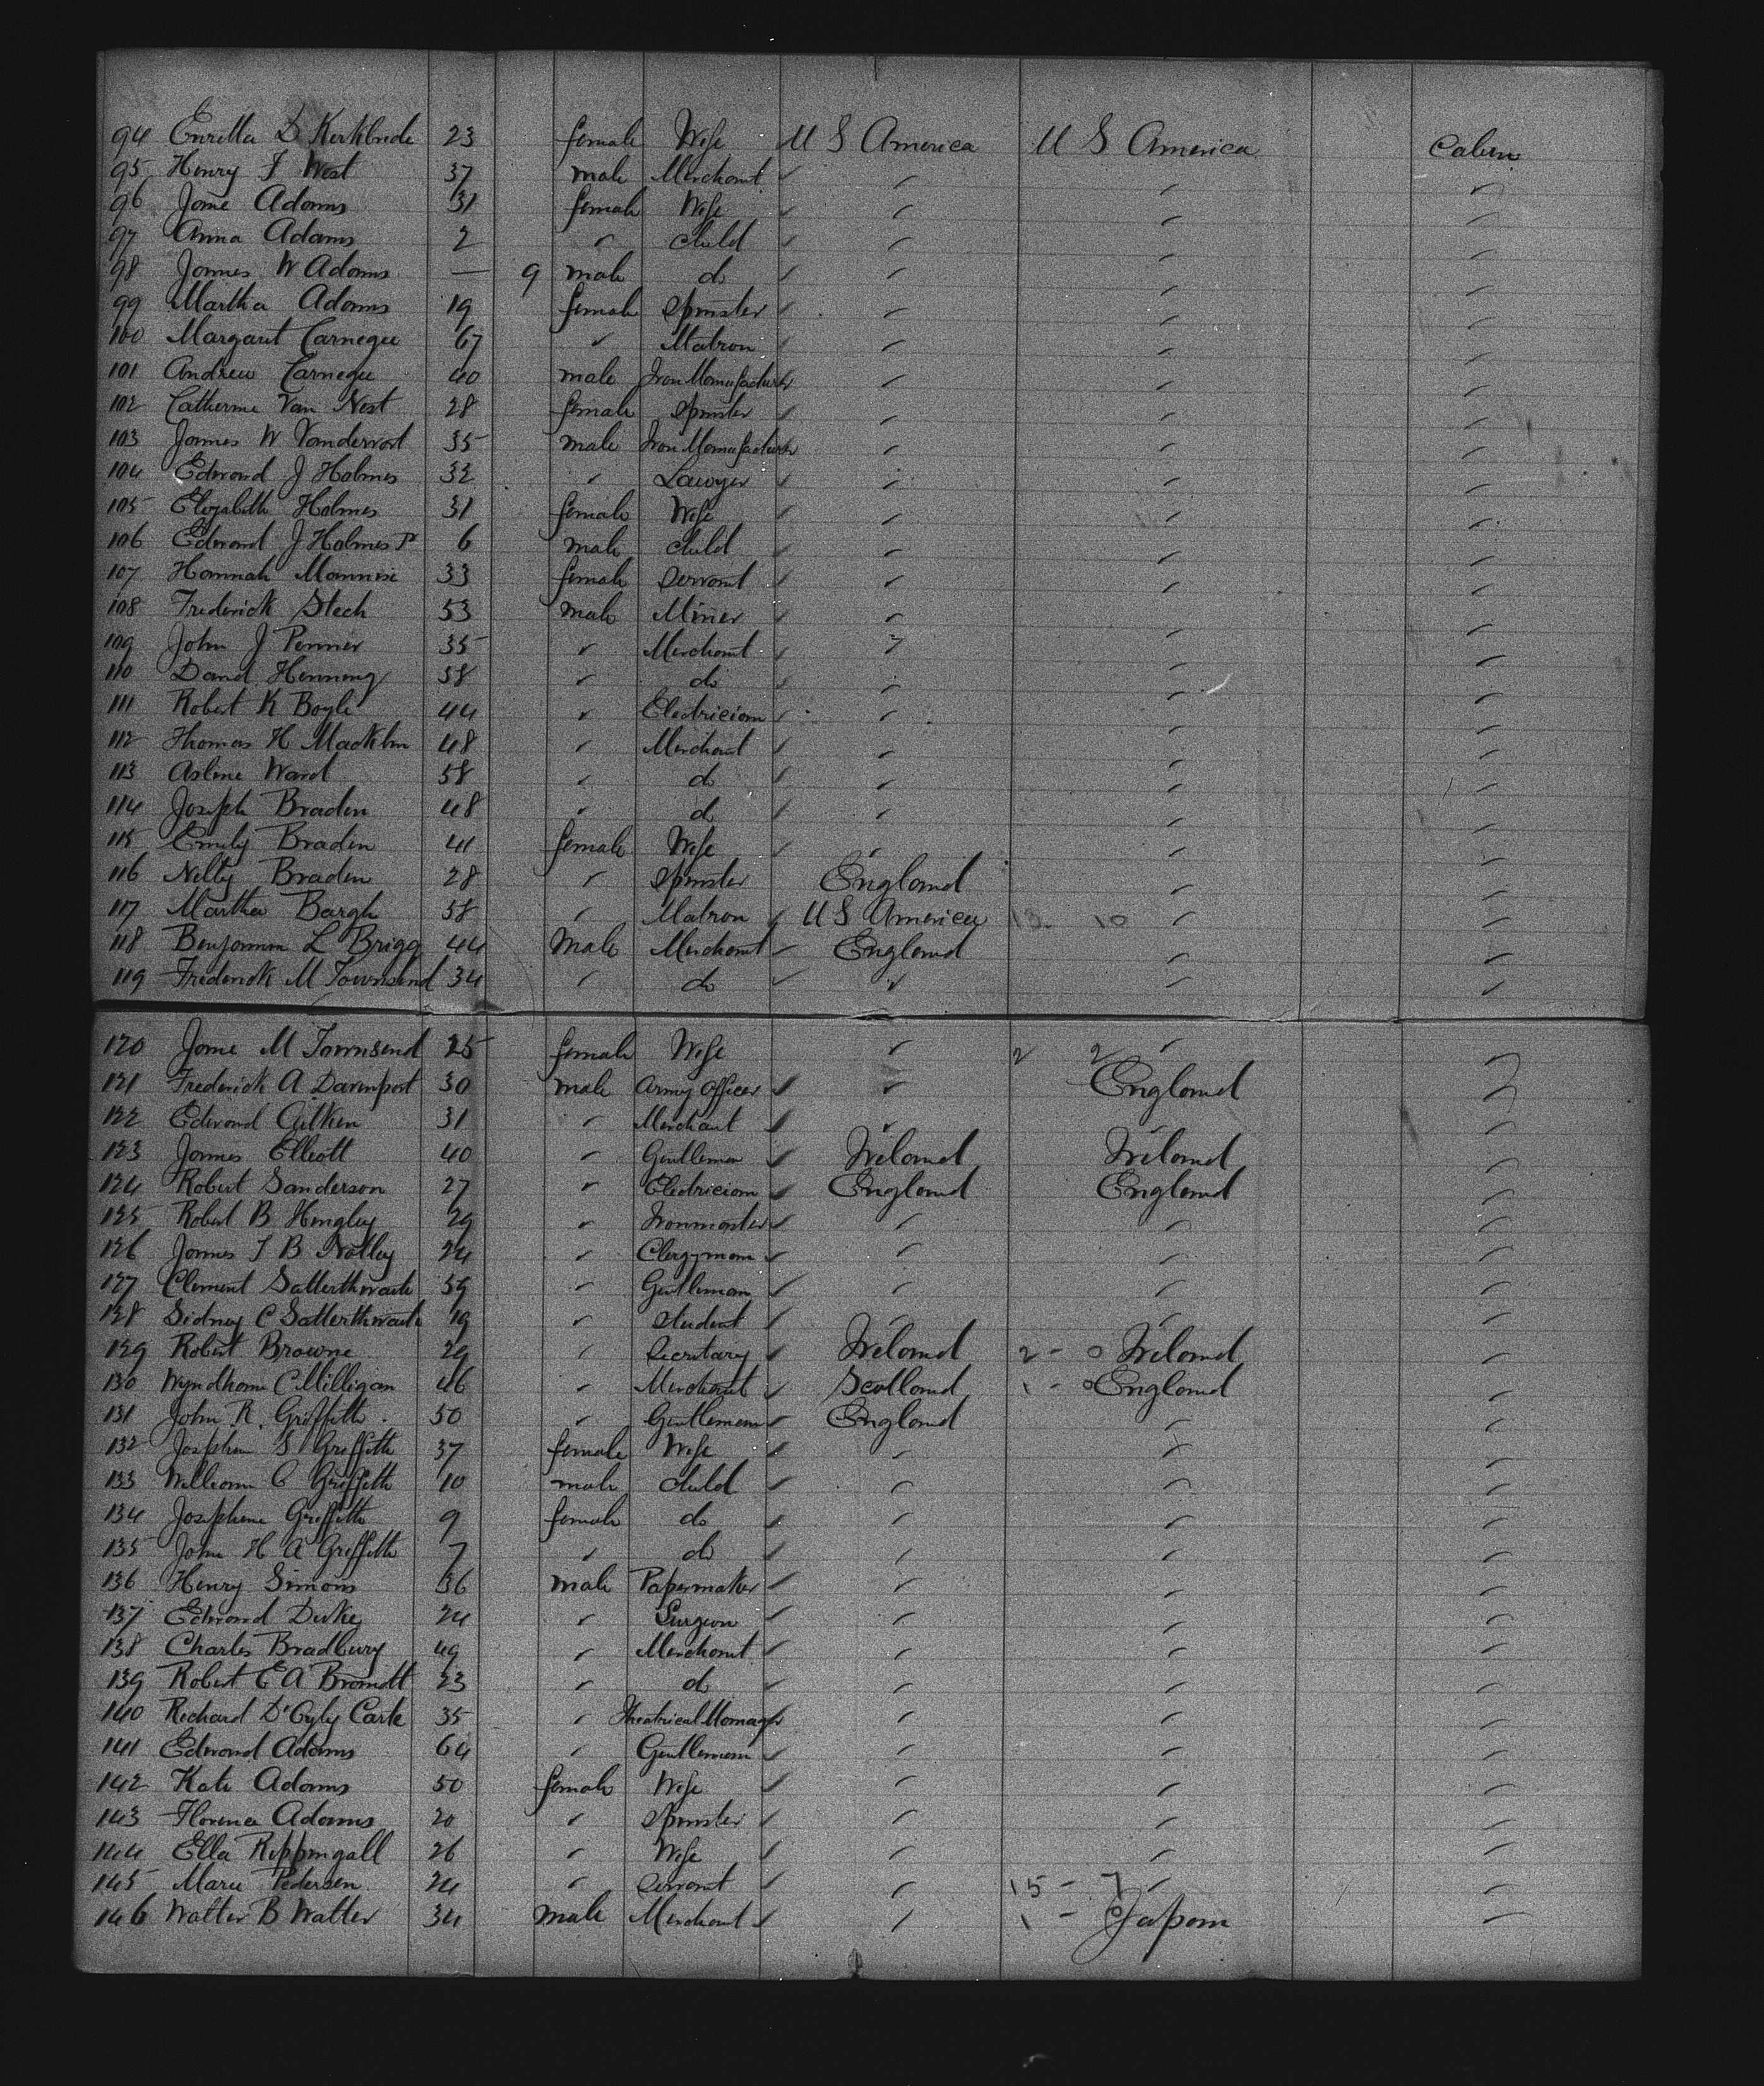 94 Enrilla D Kerkbride 23 female Wife U S America U S America Cabin
95 Henry J West 37 male Merchant ✓ ✓ ✓ ✓
96 Jane Adams 31 female Wife ✓ ✓ ✓ ✓
97 Anna Adams 2 ✓ child ✓ ✓ ✓ ✓
98 James W Adams — 9 male do ✓ ✓ ✓ ✓
99 Martha Adams 19 female Spinster ✓ ✓ ✓ ✓
100 Margaret Carnegie 67 ✓ Matron ✓ ✓ ✓ ✓
101 Andrew Carnegie 40 male Iron Manufacturer ✓ ✓ ✓
102 Catherine Van Nest 28 female Spinster ✓ ✓ ✓ ✓
103 James W Vandervort 35 male Iron Manufacturer ✓ ✓ ✓
104 Edward J Holmes 32 ✓ Lawyer ✓ ✓ ✓ ✓
105 Elizabeth Holmes 31 female Wife ✓ ✓ ✓ ✓
106 Edward J Holmes Jr 6 male child ✓ ✓ ✓ ✓
107 Hannah 33 female Servant ✓ ✓ ✓ ✓
108 Frederick Stech 53 male Miner ✓ ✓ ✓ ✓
109 John J Penner 35 ✓ Merchant ✓ ✓ ✓ ✓
110 David Henning 58 ✓ do ✓ ✓ ✓ ✓
111 Robert K Boyle 44 ✓ Electrician ✓ ✓ ✓ ✓
112 Thomas H Macklin 48 ✓ Merchant ✓ ✓ ✓ ✓
113 Ward 58 ✓ do ✓ ✓ ✓ ✓
114 Joseph Braden 48 ✓ do ✓ ✓ ✓ ✓
115 Emily Braden 41 female Wife ✓ ✓ ✓ ✓
116 Nelty Braden 28 ✓ Spinster England ✓ ✓
117 Martha Bargh 58 ✓ Matron ✓ U S America 13 10 ✓ ✓
118 Benjamin L Brigg 44 Male Merchant ✓ England ✓ ✓
119 Frederick M Townsend 34 ✓ do ✓ ✓ ✓ ✓
120 Jane M Townsend 25 female Wife ✓ 2 2 ✓ ✓
121 Frederick A Davenport 30 male Army Officer ✓ ✓ England ✓
122 Edward Aitken 31 ✓ Merchant ✓ ✓ ✓ ✓
123 James Elliott 40 ✓ Gentleman ✓ Ireland Ireland ✓
124 Robert Sanderson 27 ✓ Electrician ✓ England England ✓
125 Robert B Hingley 29 ✓ Ironmaster ✓ ✓ ✓ ✓
126 James T B Notley 24 ✓ Clergyman ✓ ✓ ✓ ✓
127 Clement Satterthwaite 59 ✓ Gentleman ✓ ✓ ✓ ✓
128 Sidney C Satterthwaite 19 ✓ Student ✓ ✓ ✓ ✓
129 Robert Browne 29 ✓ Secretary ✓ Ireland 2 - 0 Ireland ✓
130 Wyndham C Milligan 46 ✓ Merchant ✓ Scotland 1 - 0 England ✓
131 John R. Griffith 50 ✓ Gentleman ✓ England ✓ ✓
132 Josephine S Griffith 37 female Wife ✓ ✓ ✓ ✓
133 William C Griffith 10 male child ✓ ✓ ✓ ✓
134 Josephine Griffith 9 female do ✓ ✓ ✓ ✓
135 John H A Griffith 7 ✓ do ✓ ✓ ✓ ✓
136 Henry Simons 36 male Papermaker ✓ ✓ ✓ ✓
137 Edward Duke 24 ✓ Surgeon ✓ ✓ ✓ ✓
138 Charles Bradbury 49 ✓ Merchant ✓ ✓ ✓ ✓
139 Robert E A Bramdt 23 ✓ do ✓ ✓ ✓ ✓
140 Richard D'Oyly Carte 35 ✓ Theatrical Manager ✓ ✓ ✓
141 Edward Adams 64 ✓ Gentleman ✓ ✓ ✓ ✓
142 Kate Adams 50 female Wife ✓ ✓ ✓ ✓
143 Florence Adams 20 ✓ Spinster ✓ ✓ ✓ ✓
144 Ella Rippingall 26 ✓ Wife ✓ ✓ ✓ ✓
145 Marie Pedersen 24 ✓ Servant ✓ ✓ 15 - 7 ✓ ✓
146 Walter B Walter 34 male Merchant ✓ ✓ 1 - 0 Japan ✓